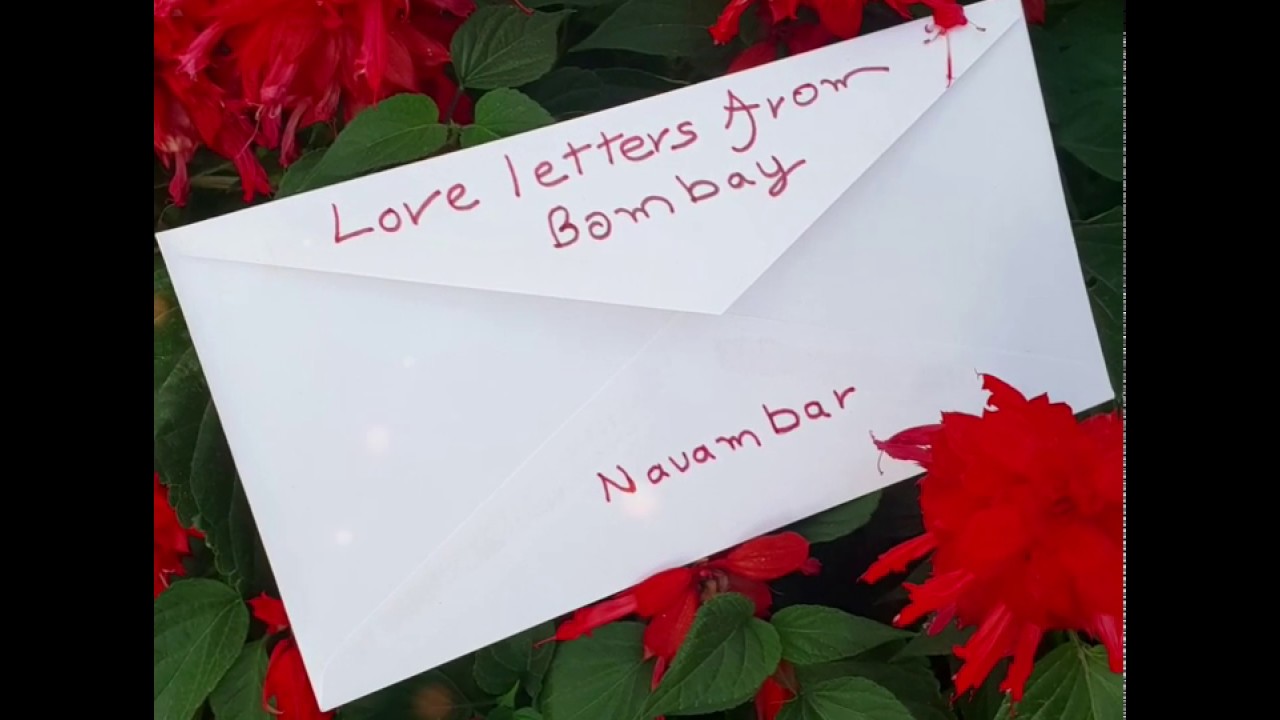 Love letters from
Bombay
Navambar